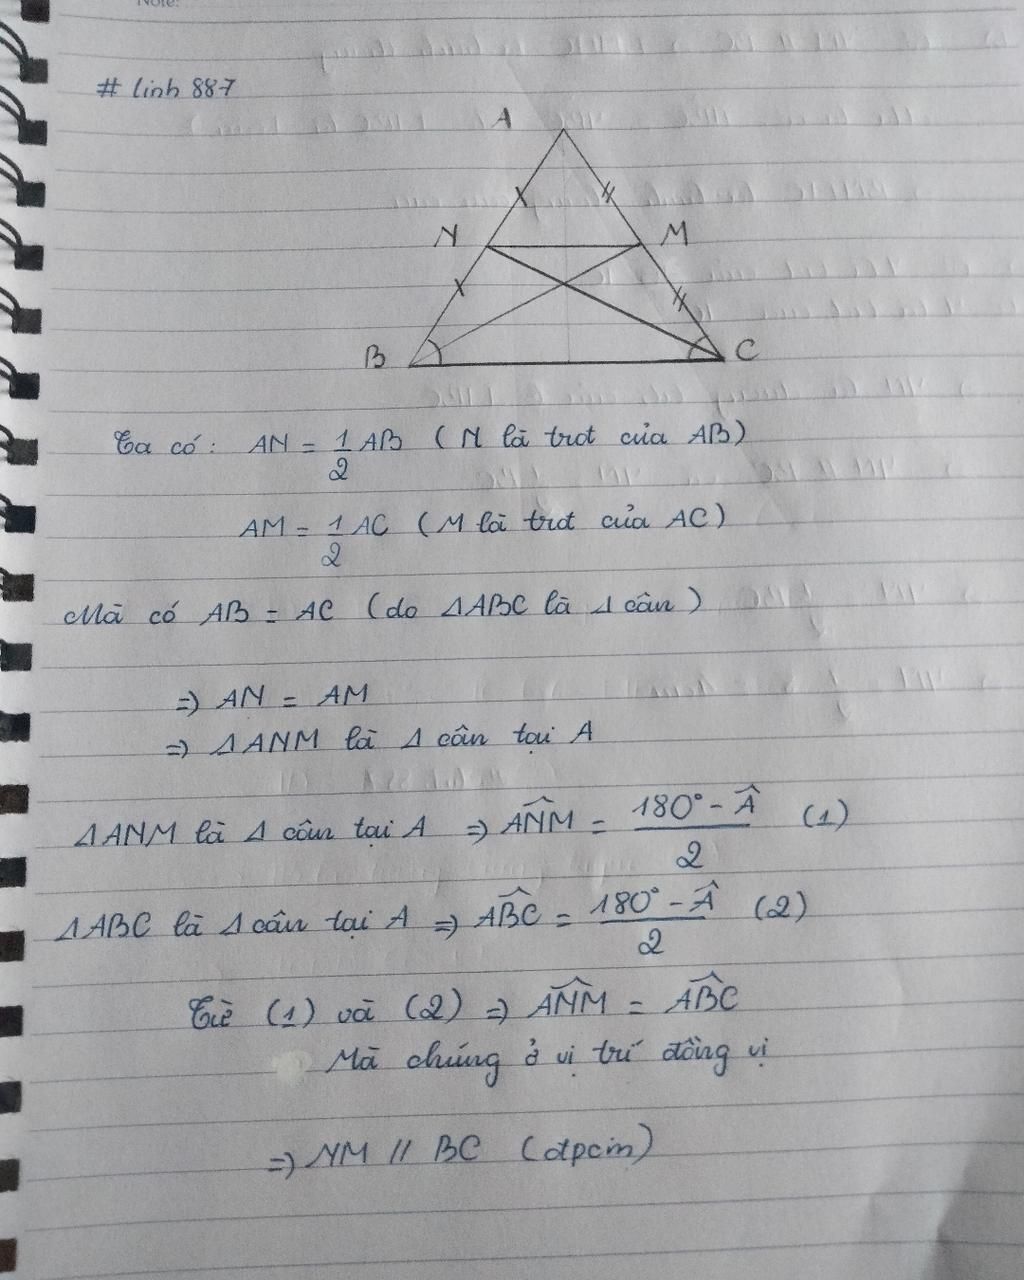 Note:
# linh 887
A
N
M
B
C
Ta có: AN = 1/2 AB (N là trđt của AB)
AM = 1/2 AC (M là trđt của AC)
Mà có AB = AC (do ΔABC là Δ cân)
=> AN = AM
=> ΔANM là Δ cân tại A
ΔANM là Δ cân tại A => \widehat{ANM} = (180° - Â)/2 (1)
ΔABC là Δ cân tại A => \widehat{ABC} = (180° - Â)/2 (2)
Từ (1) và (2) => \widehat{ANM} = \widehat{ABC}
Mà chúng ở vị trí đồng vị
=> NM // BC (đpcm)